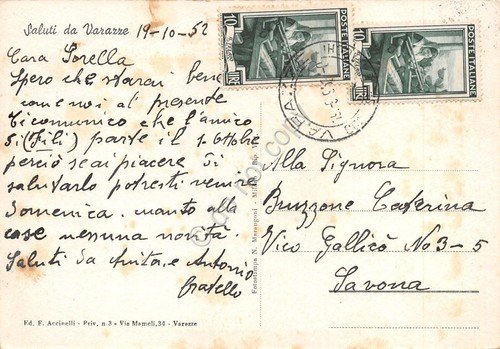 Saluti da Varazze 19-10-52
Cara Sorella
Spero che starai bene
come noi al presente
ti comunico che l'amico
Si (Fili) parte il 1. Ottobre
perciò se ai piacere di
salutarlo potresti venire
Domenica. manto alla
case nessuna novità.
Saluti da Anita e Antonio
fratello
POSTE ITALIANE
LIRE 10
POSTE ITALIANE
LIRE 10
VARAZZE
Alla Signora
Bruzzone Caterina
Vico Gallicò No 3-5
Savona
Fototampa N. Marangoni - Milano
Ed. F. Accinelli - Priv. n. 3 - Via Mameli, 34 - Varazze